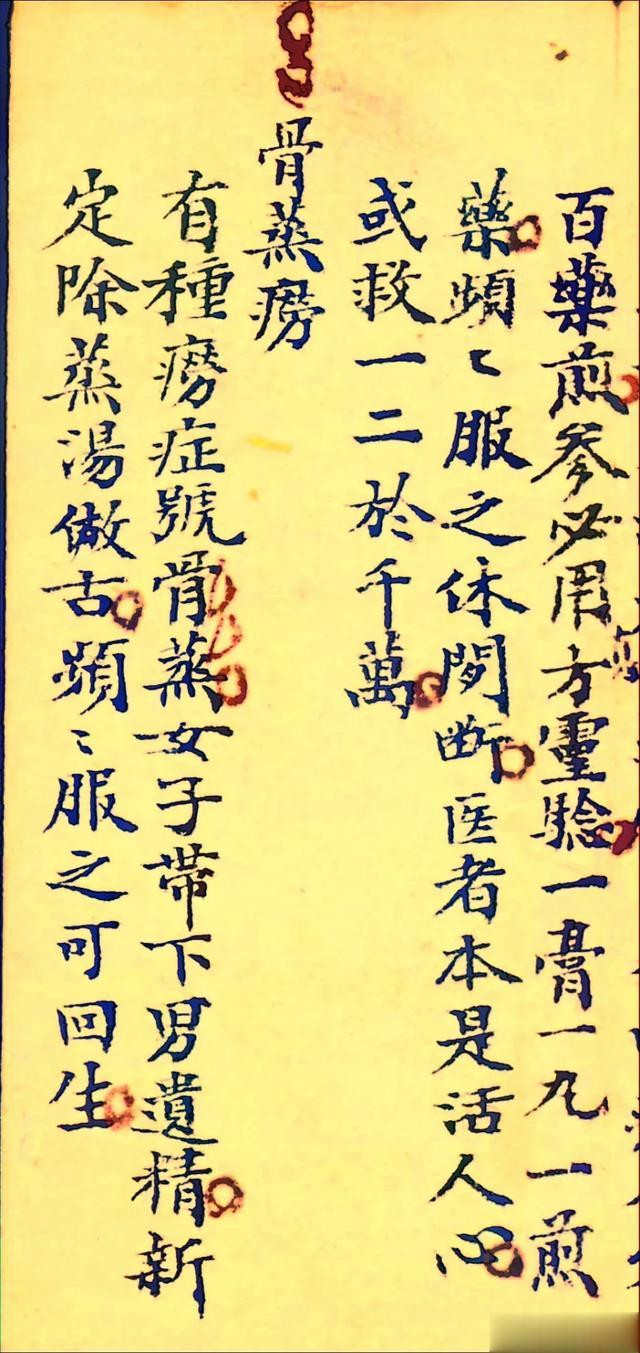 百藥煎參必用方靈驗一膏一九一煎
藥頻〻服之休間断医者本是活人心
或救一二於千萬
骨蒸癆
有種癆症號骨蒸女子帶下男遺精新
定除蒸湯倣古頻〻服之可回生